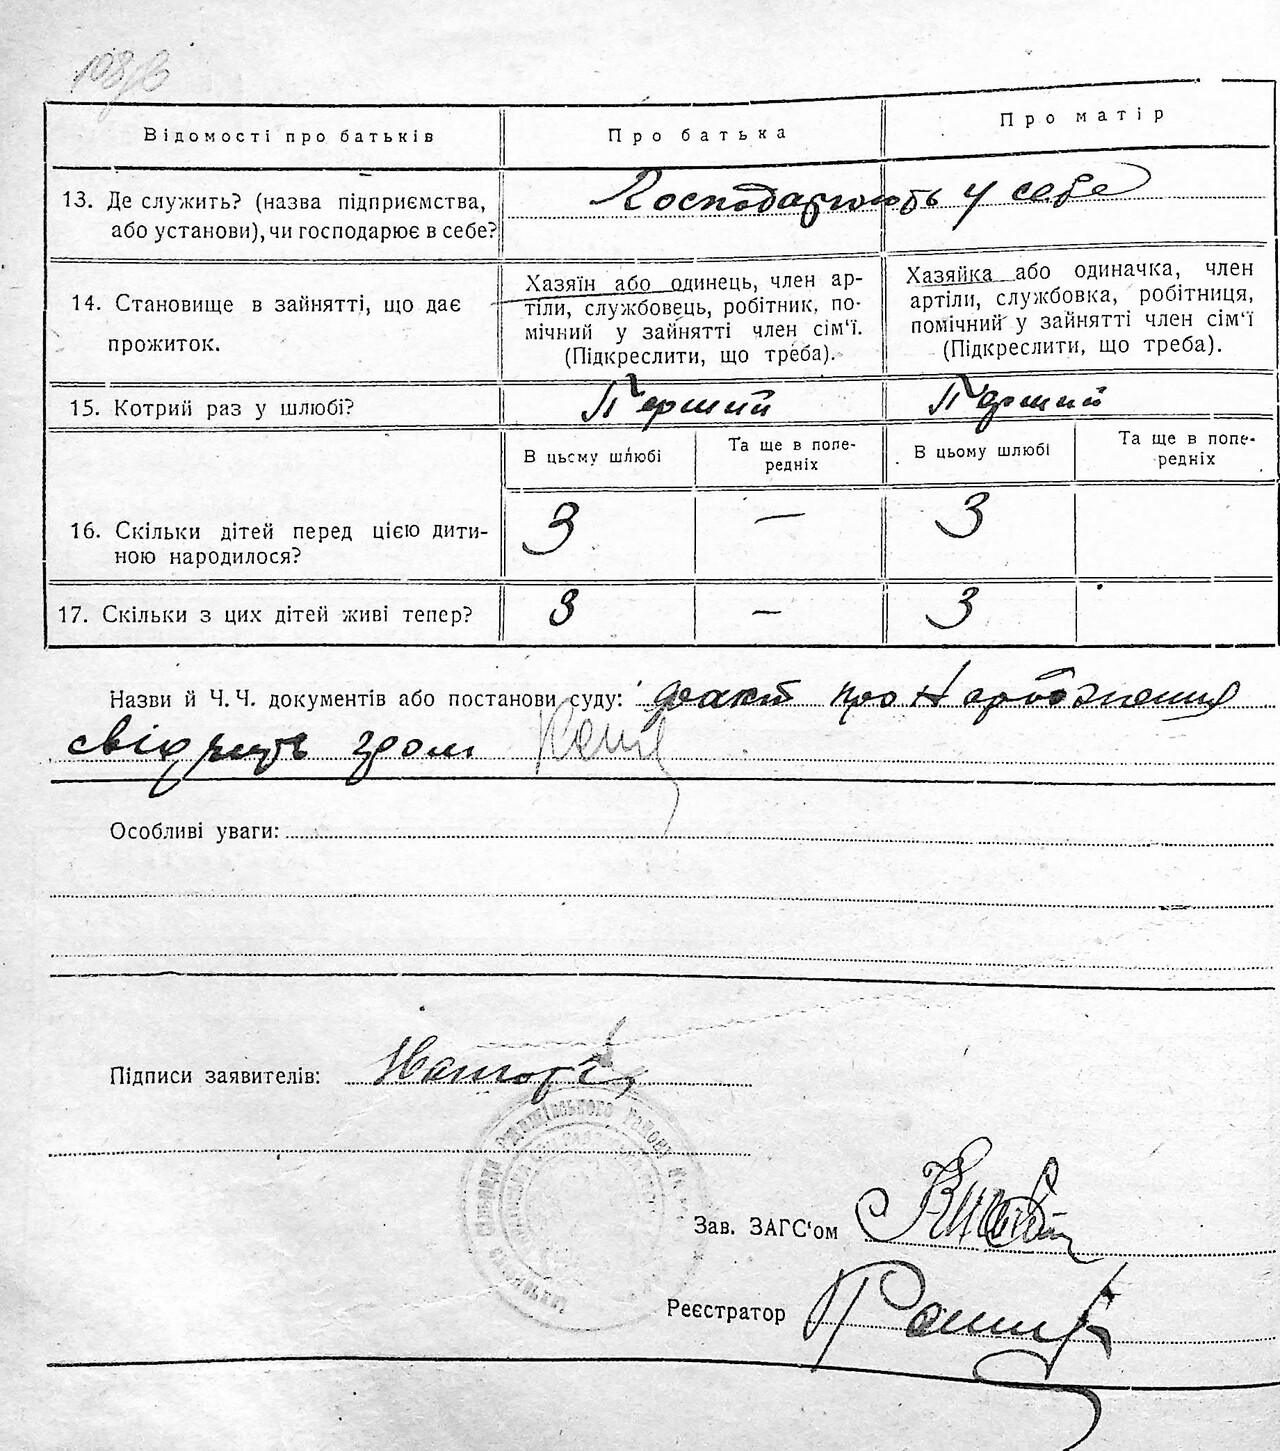 Відомості про батьків
Про батька
Про матір
13. Де служить? (назва підприємства,
або установи), чи господарює в себе?
Господарюють у себе
14. Становище в зайнятті, що дає
прожиток.
Хазяїн або одинець, член ар-
тіли, службовець, робітник, по-
мічний у зайнятті член сім'ї.
(Підкреслити, що треба).
Хазяйка або одиначка, член
артіли, службовка, робітниця,
помічний у зайнятті член сім'ї
(Підкреслити, що треба).
15. Котрий раз у шлюбі?
Перший
Перший
В цьому шлюбі
Та ще в попе-
редніх
В цьому шлюбі
Та ще в попе-
редніх
16. Скільки дітей перед цією дити-
ною народилося?
3
—
3
17. Скільки з цих дітей живі тепер?
3
—
3
Назви й Ч. Ч. документів або постанови суду: факт про народження
свідчить гром
Особливі уваги:
Підписи заявителів:
Зав. ЗАГС'ом
Реєстратор